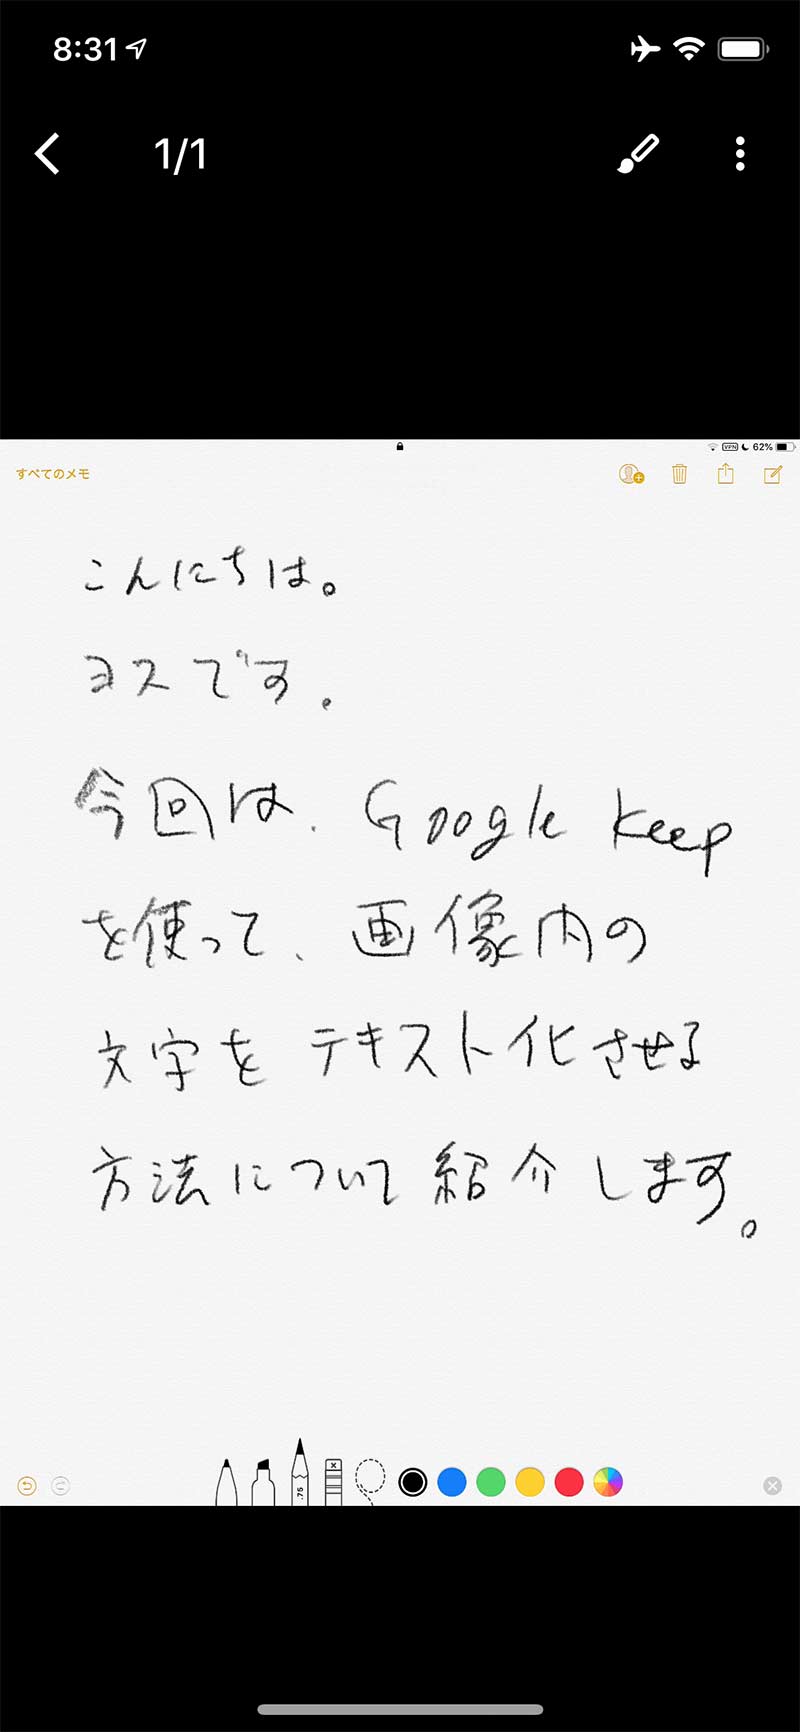 8:31
1/1
62%
VPN
すべてのメモ
こんにちは。
ヨスです.
今回は、Google Keep
を使って、画像内の
文字をテキスト化させる
方法について紹介します。
.75